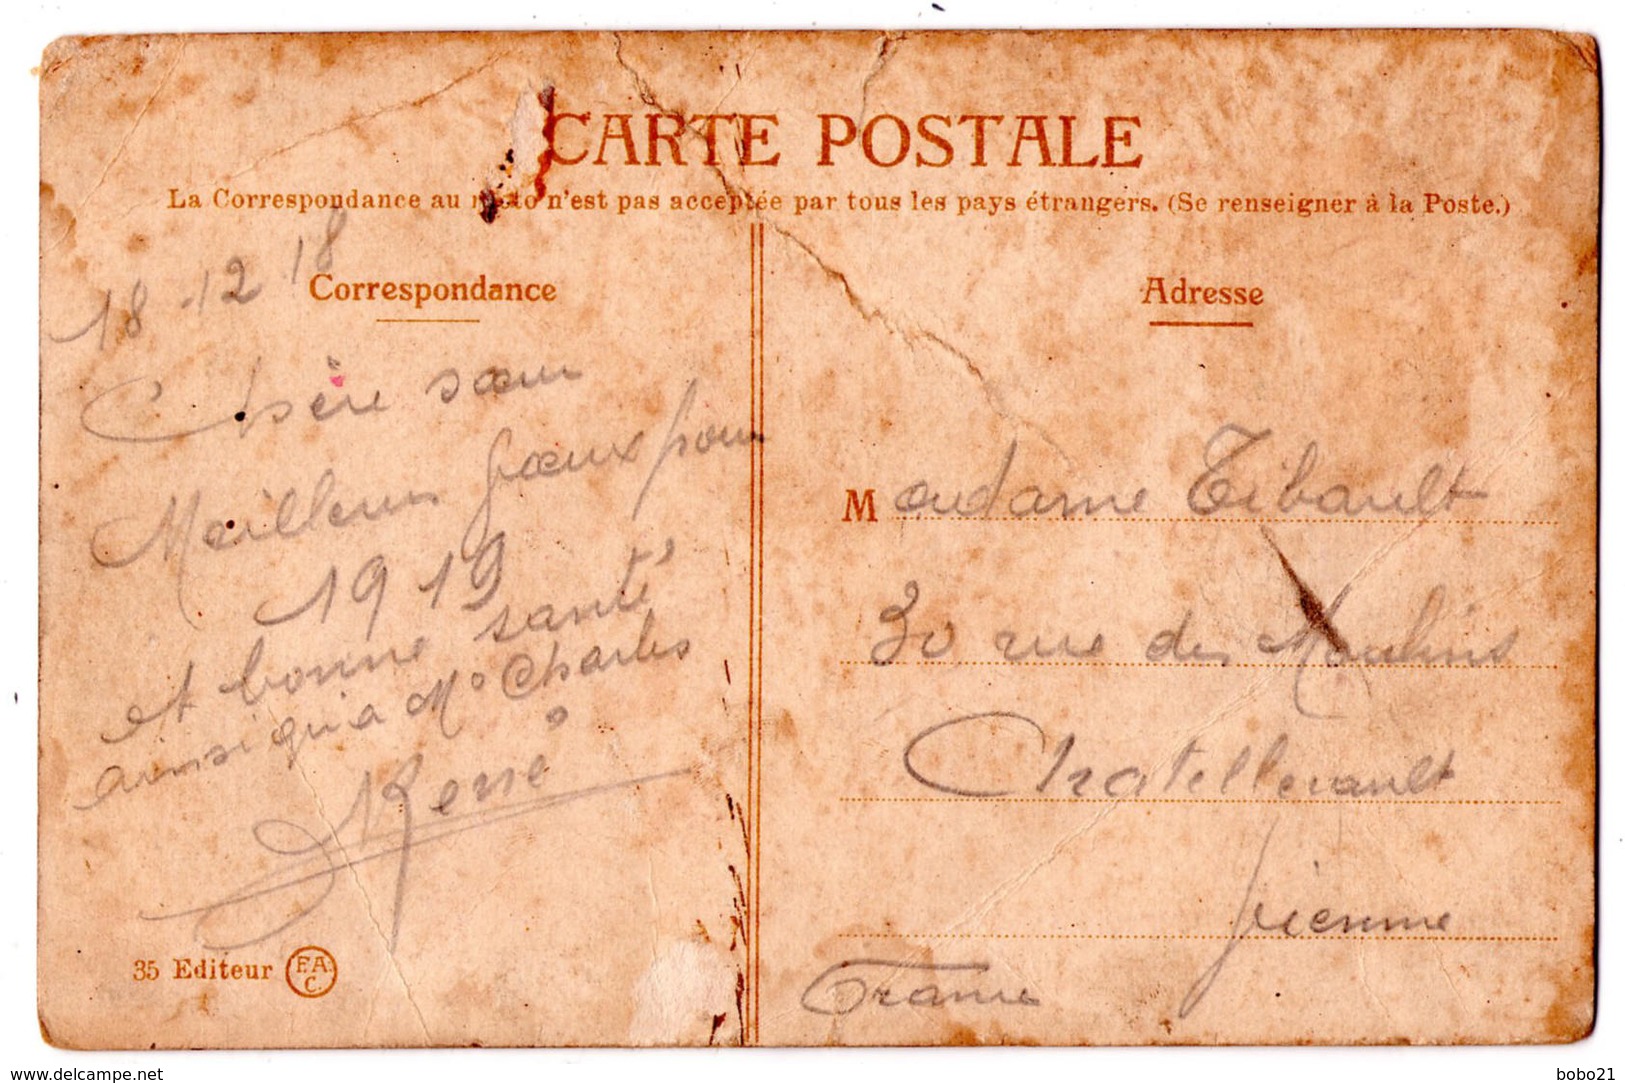 CARTE POSTALE
La Correspondance au recto n'est pas acceptée par tous les pays étrangers. (Se renseigner à la Poste.)
18-12 18
Correspondance
Chère sœur
Meilleurs vœux pour
1919
et bonne santé
ainsi qu'a Mr Charles
René
35 Editeur F.A.C.
Adresse
Madame Tibault
30 rue des Moulins
Chatellerault
Vienne
France
www.delcampe.net
bobo21